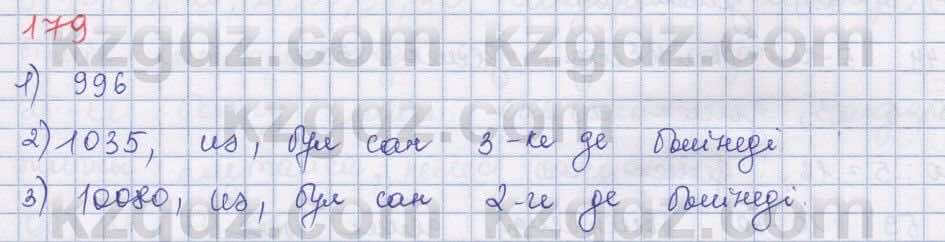 179
1) 996
2) 1035, иә, бұл сан 3-ке де бөлінеді
3) 10080, иә, бұл сан 2-ге де бөлінеді.
kzgdz.com kzgdz.com
kzgdz.com